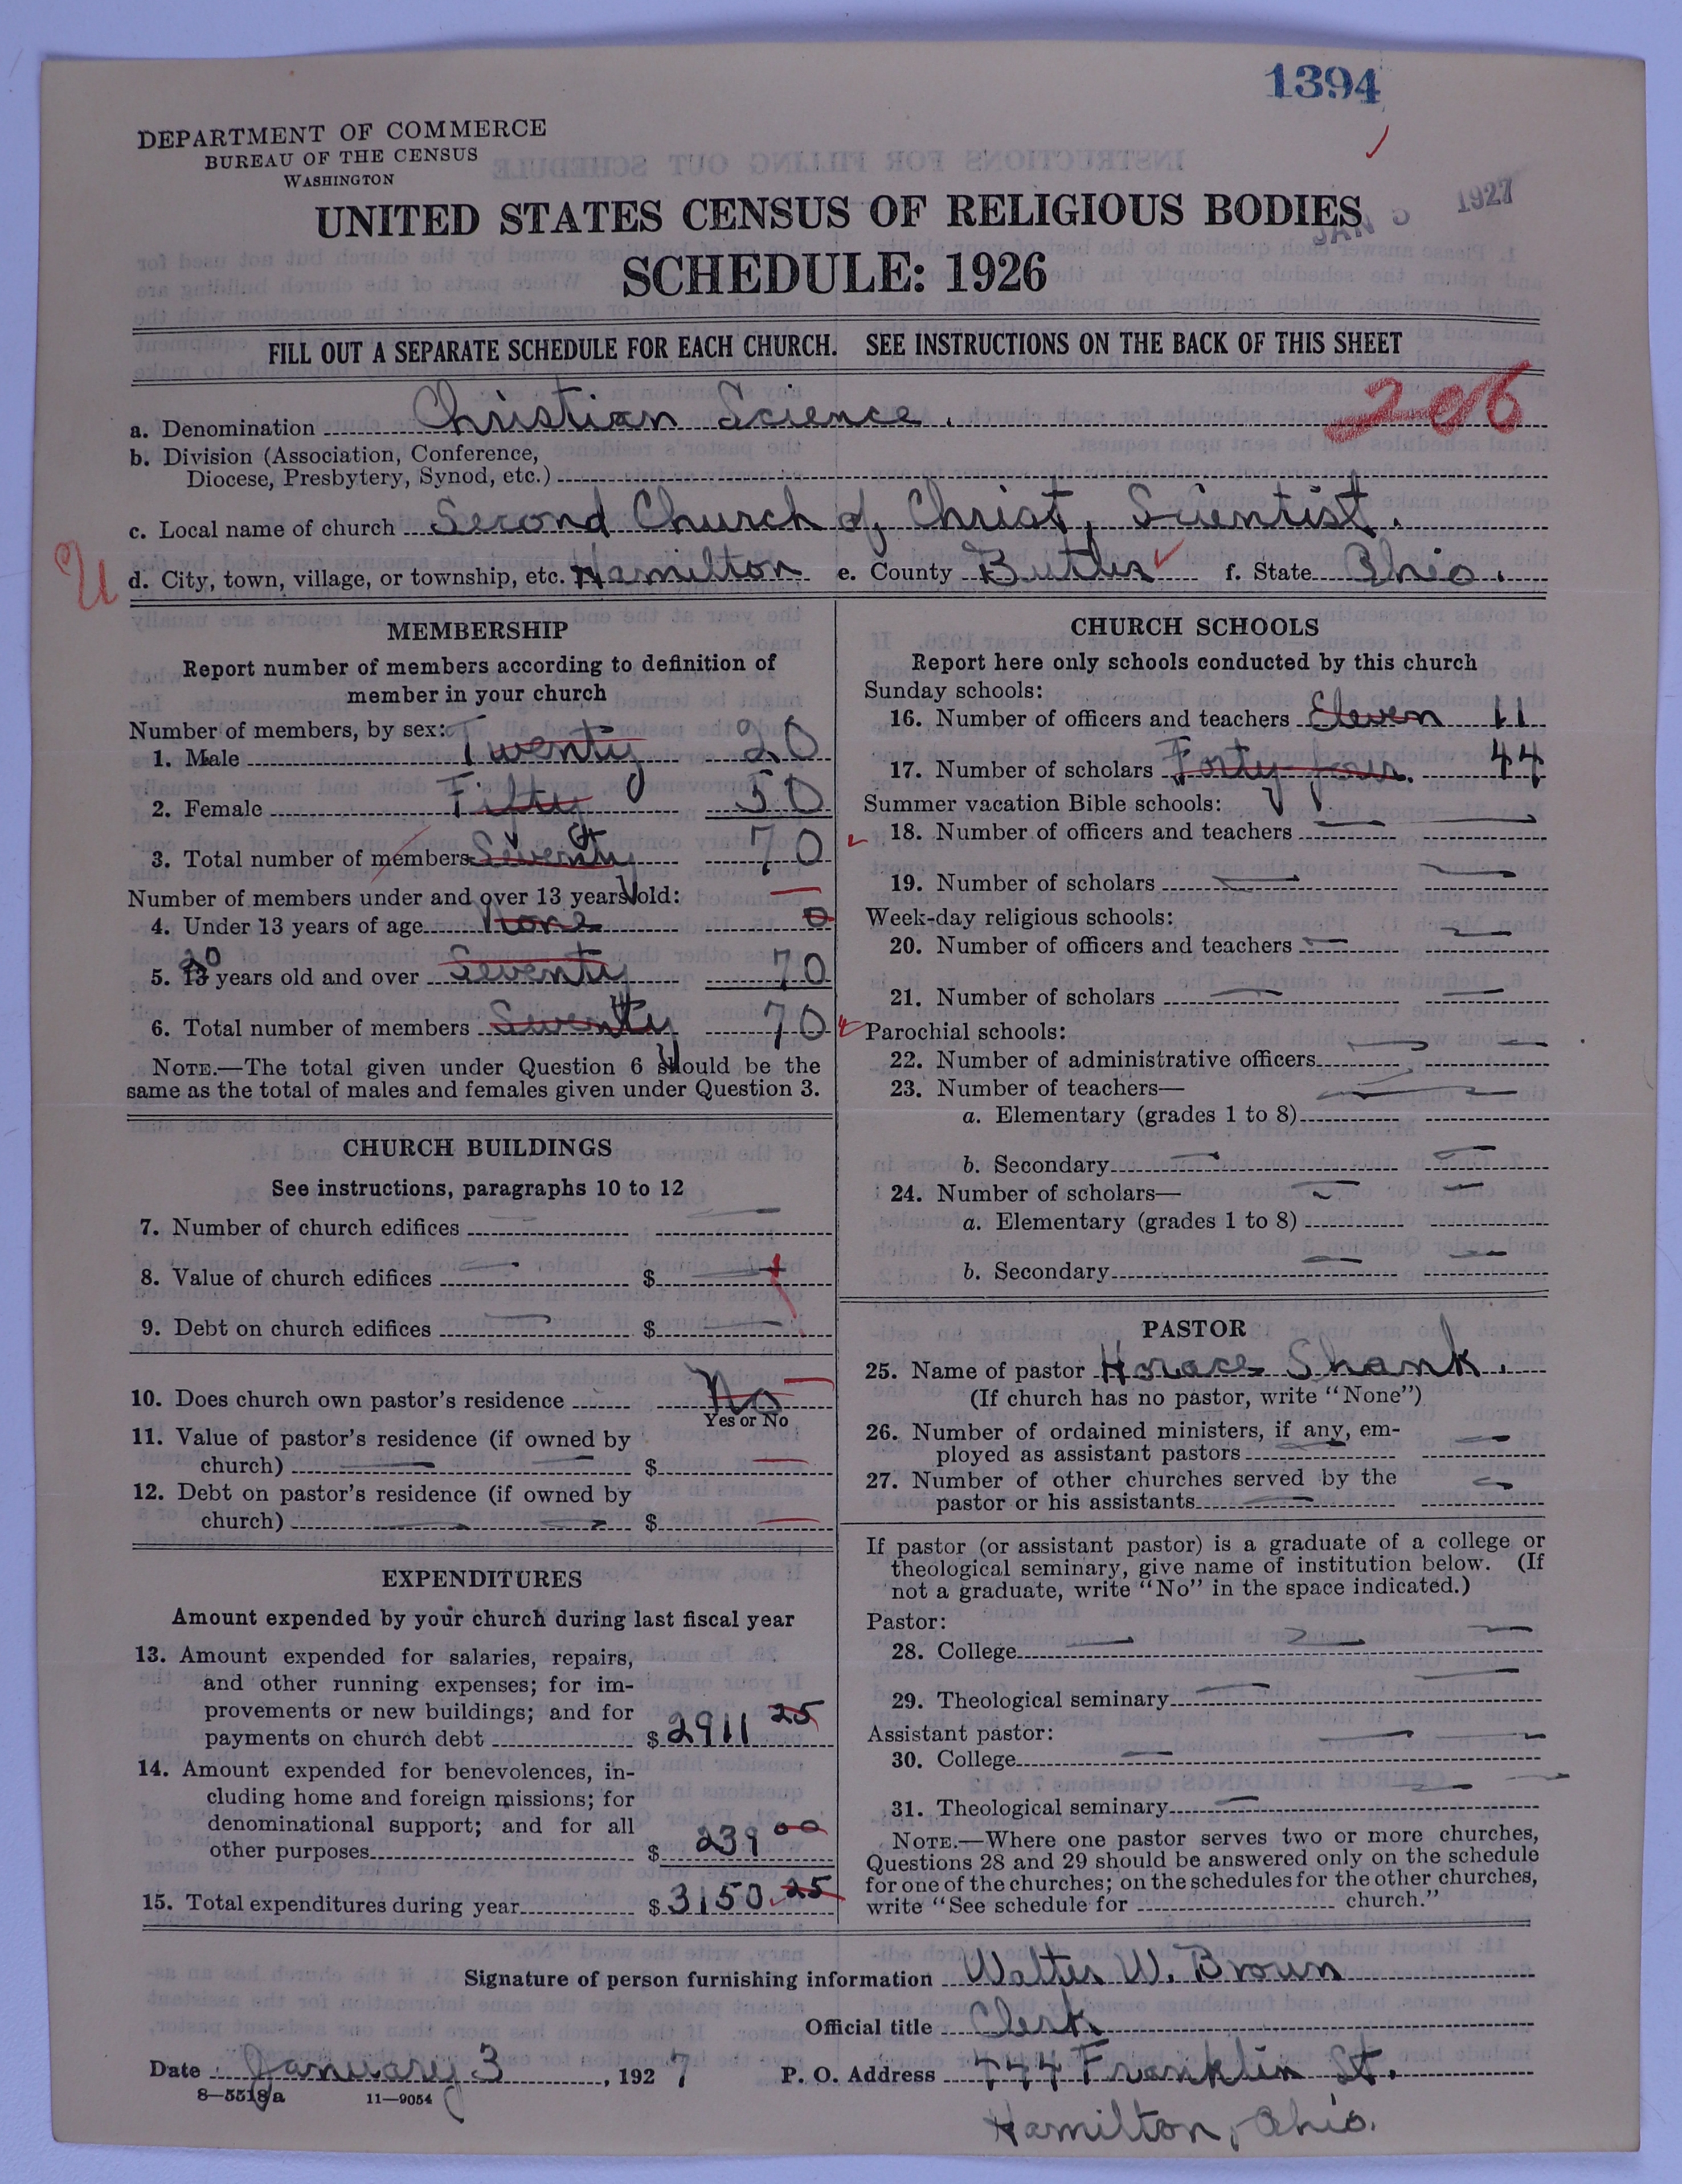 1394
DEPARTMENT OF COMMERCE
BUREAU OF THE CENSUS
WASHINGTON
JAN 5 1927
UNITED STATES CENSUS OF RELIGIOUS BODIES
SCHEDULE: 1926
FILL OUT A SEPARATE SCHEDULE FOR EACH CHURCH. SEE INSTRUCTIONS ON THE BACK OF THIS SHEET
a. Denomination Christian Science.
b. Division (Association, Conference,
Diocese, Presbytery, Synod, etc.)
c. Local name of church Second Church of Christ, Scientist.
U
d. City, town, village, or township, etc. Hamilton e. County Butler f. State Ohio.
MEMBERSHIP
Report number of members according to definition of
member in your church
Number of members, by sex:
1. Male Twenty 20
2. Female Fifty 50
3. Total number of members Seventy 70
Number of members under and over 13 years old:
4. Under 13 years of age None 0
20
5. 13 years old and over Seventy 70
6. Total number of members Seventy 70
NOTE.—The total given under Question 6 should be the
same as the total of males and females given under Question 3.
CHURCH BUILDINGS
See instructions, paragraphs 10 to 12
7. Number of church edifices
8. Value of church edifices $
9. Debt on church edifices $
10. Does church own pastor's residence No
Yes or No
11. Value of pastor's residence (if owned by
church) $
12. Debt on pastor's residence (if owned by
church) $
EXPENDITURES
Amount expended by your church during last fiscal year
13. Amount expended for salaries, repairs,
and other running expenses; for im-
provements or new buildings; and for
payments on church debt $ 2911 25
14. Amount expended for benevolences, in-
cluding home and foreign missions; for
denominational support; and for all
other purposes $ 239 00
15. Total expenditures during year $ 3150 25
CHURCH SCHOOLS
Report here only schools conducted by this church
Sunday schools:
16. Number of officers and teachers Eleven 11
17. Number of scholars Forty four. 44
Summer vacation Bible schools:
18. Number of officers and teachers
19. Number of scholars
Week-day religious schools:
20. Number of officers and teachers
21. Number of scholars
Parochial schools:
22. Number of administrative officers
23. Number of teachers—
a. Elementary (grades 1 to 8)
b. Secondary
24. Number of scholars—
a. Elementary (grades 1 to 8)
b. Secondary
PASTOR
25. Name of pastor Horace Shank.
(If church has no pastor, write "None")
26. Number of ordained ministers, if any, em-
ployed as assistant pastors
27. Number of other churches served by the
pastor or his assistants
If pastor (or assistant pastor) is a graduate of a college or
theological seminary, give name of institution below. (If
not a graduate, write "No" in the space indicated.)
Pastor:
28. College
29. Theological seminary
Assistant pastor:
30. College
31. Theological seminary
NOTE.—Where one pastor serves two or more churches,
Questions 28 and 29 should be answered only on the schedule
for one of the churches; on the schedules for the other churches,
write "See schedule for church."
Signature of person furnishing information Walter W. Brown
Official title Clerk
Date January 3, 1927 P. O. Address 444 Franklin St.
8—5518a 11—9054
Hamilton, Ohio.